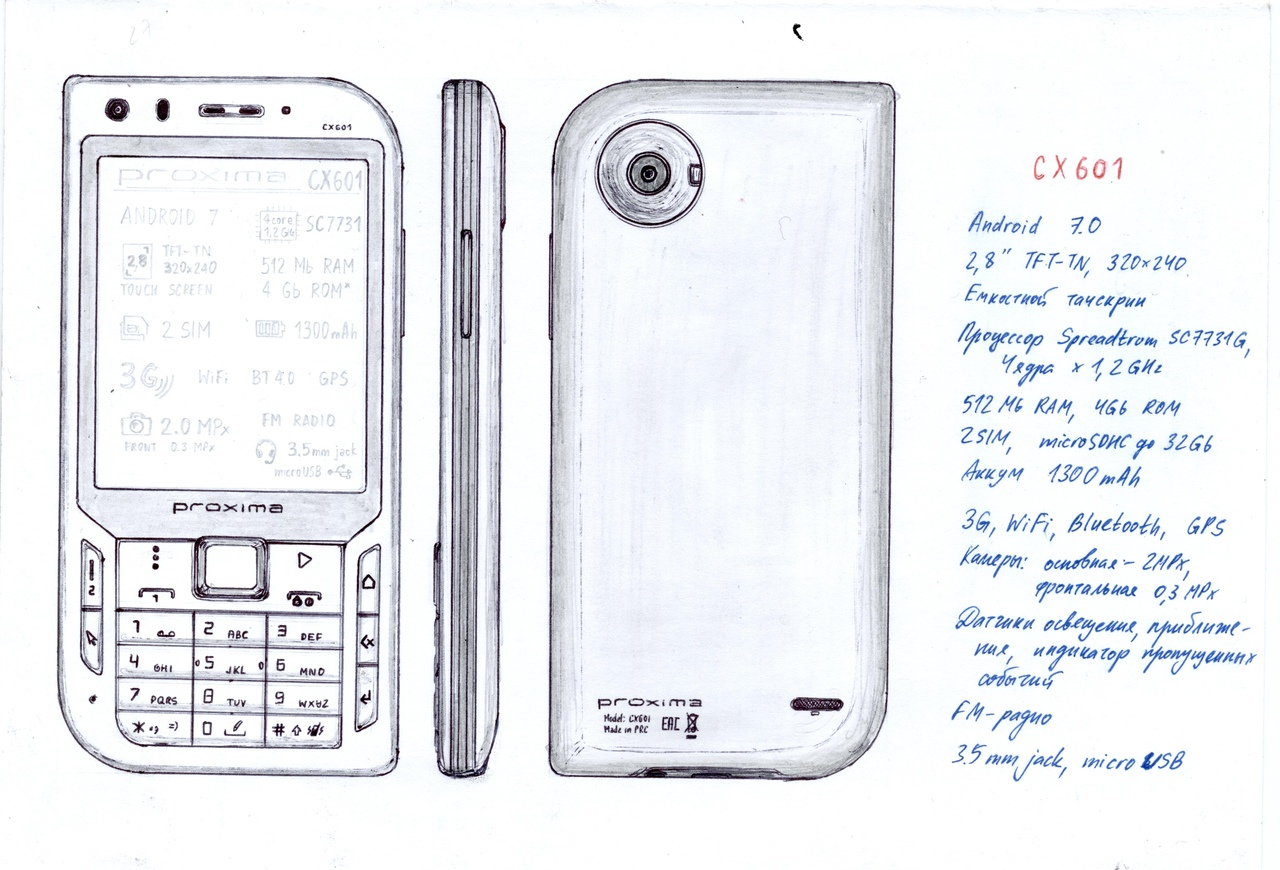 27
CX601
proxima CX601
ANDROID 7
4core
1.2GHz
SC7731
2,8"
TFT-TN
320x240
TOUCH SCREEN
512 Mb RAM
4 Gb ROM*
2 SIM
1300mAh
3G WiFi BT 4.0 GPS
2.0 MPx
FRONT 0.3 MPx
FM RADIO
3.5mm jack
microUSB
proxima
1
2
1
2 ABC
3 DEF
4 GHI
5 JKL
6 MNO
7 PQRS
8 TUV
9 WXYZ
* ., =)
0
#
proxima
Model: CX601
Made in PRC
EAC
CX601
Android 7.0
2,8" TFT-TN, 320×240
Емкостной тачскрин
Процессор Spreadtrum SC7731G,
4 ядра × 1,2 GHz
512 Mb RAM, 4Gb ROM
2SIM, microSDHC до 32Gb
Аккум 1300 mAh
3G, WiFi, Bluetooth, GPS
Камеры: основная - 2MPx,
фронтальная 0,3 MPx
Датчики освещения, приближе-
ния, индикатор пропущенных
событий
FM-радио
3.5 mm jack, micro USB